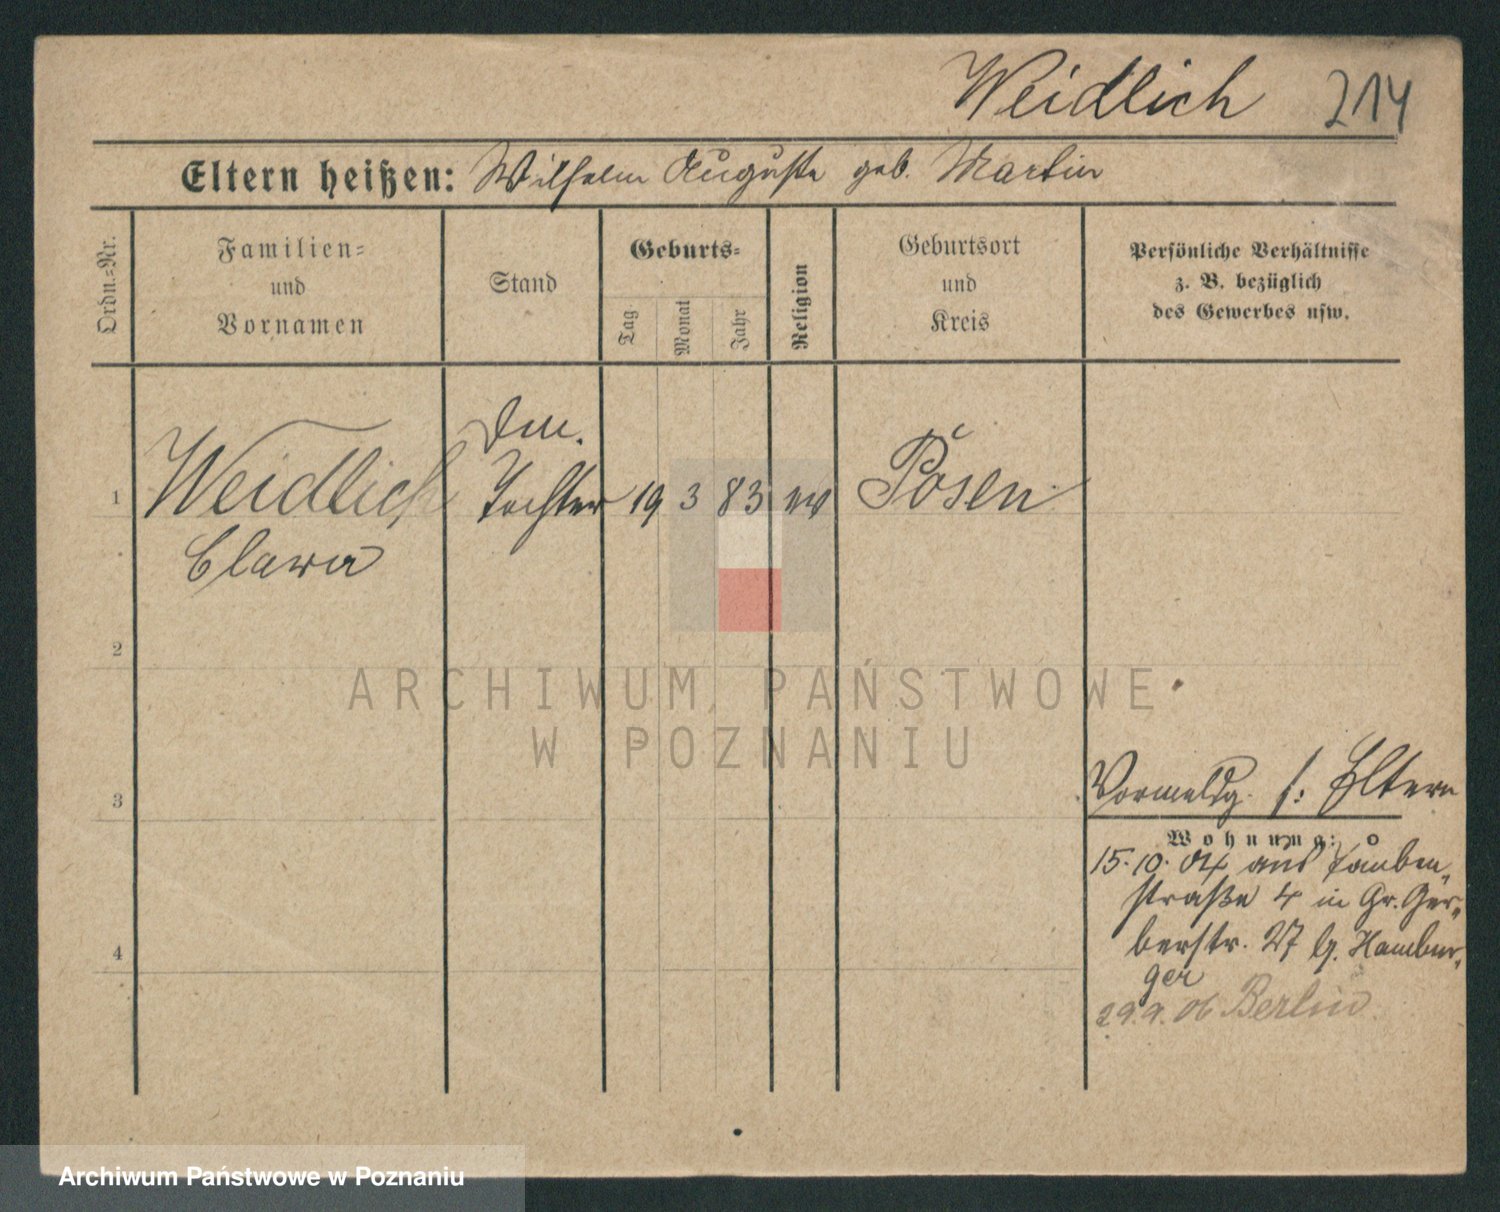 Weidlich 214
Eltern heißen: Wilhelm Auguste geb. Martin
Ordn.=Nr.
Familien=
und
Vornamen
Stand
Geburts=
Tag
Monat
Jahr
Religion
Geburtsort
und
Kreis
Persönliche Verhältnisse
z. B. bezüglich
des Gewerbes usw.
1
Weidlich
Clara
Tochter
19 3 83 ev
Posen
2
3
4
Vormeldg. s: Eltern
Wohnung:
15.10.04 aus Tauben-
straße 4 in Gr. Ger-
berstr. 27 b. Hambur-
ger
29.9.06 Berlin.
ARCHIWUM PAŃSTWOWE
W POZNANIU
Archiwum Państwowe w Poznaniu